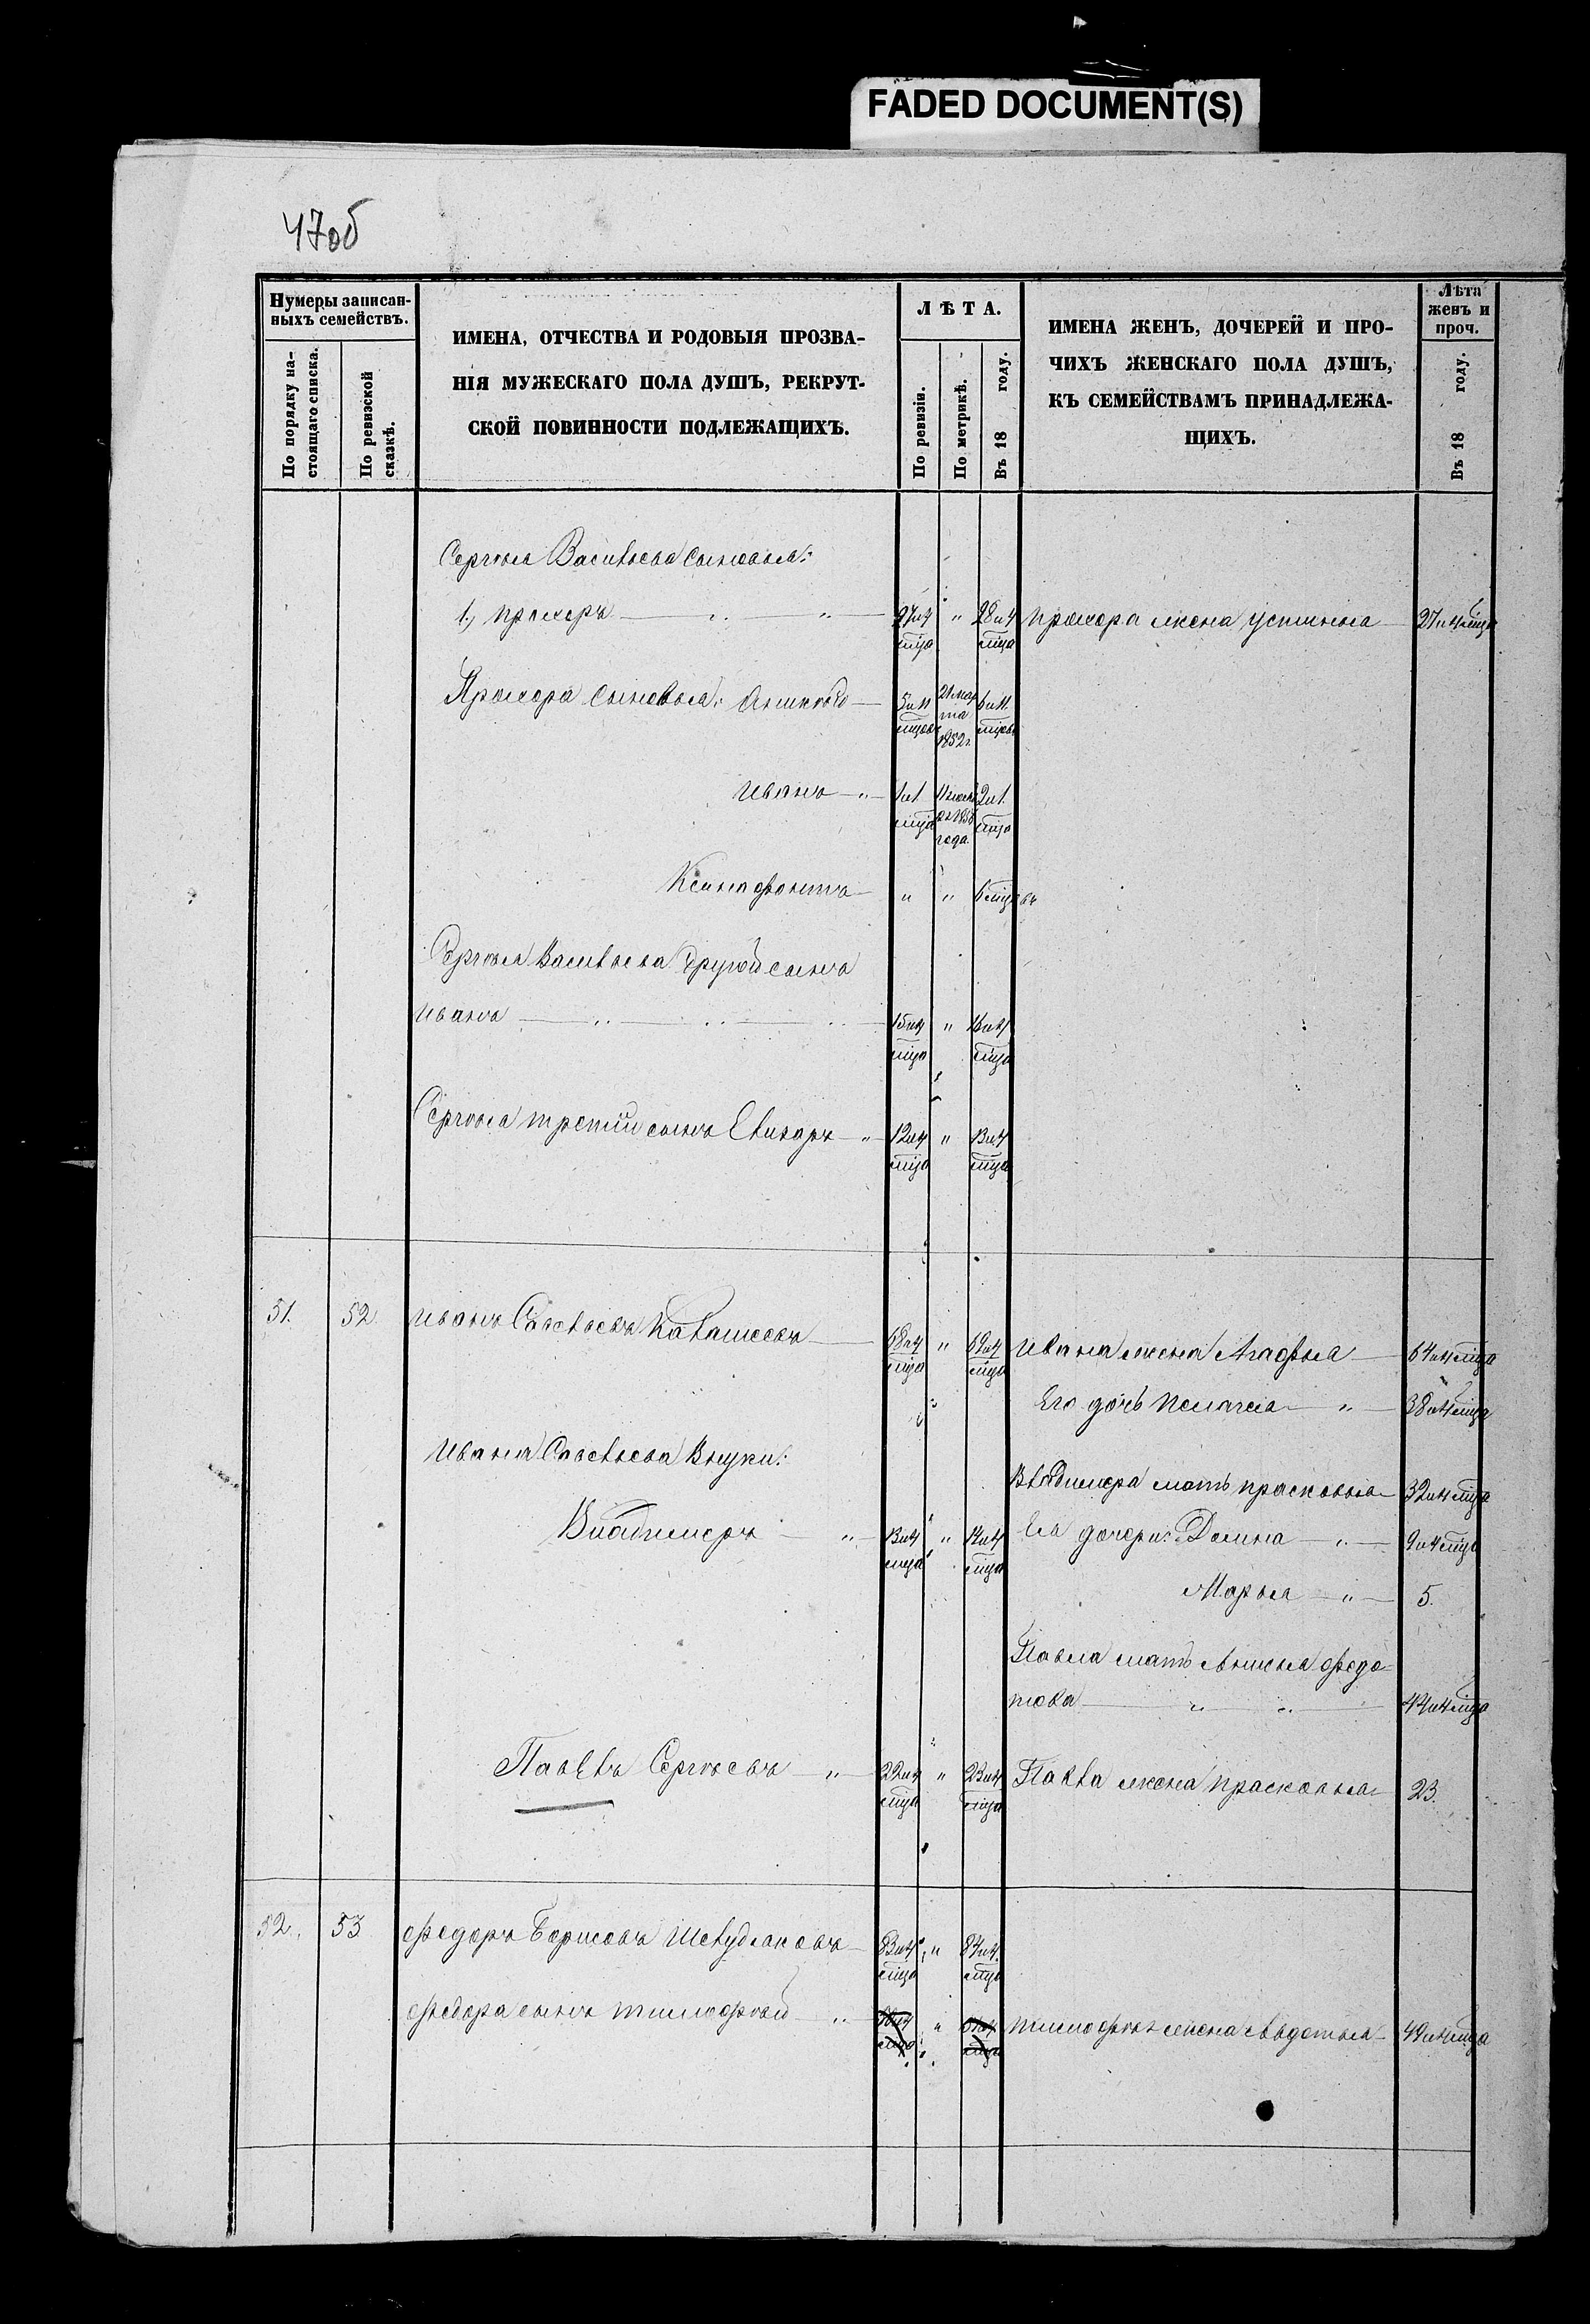 FADED DOCUMENT(S)
47об
Нумеры записан-
ныхъ семействъ.
По порядку на-
стоящаго списка.
По ревизской
сказкѣ.
ИМЕНА, ОТЧЕСТВА И РОДОВЫЯ ПРОЗВА-
НІЯ МУЖЕСКАГО ПОЛА ДУШЪ, РЕКРУТ-
СКОЙ ПОВИННОСТИ ПОДЛЕЖАЩИХЪ.
ЛѢТА.
По ревизіи.
По метрикѣ.
Въ 18 году.
ИМЕНА ЖЕНЪ, ДОЧЕРЕЙ И ПРО-
ЧИХЪ ЖЕНСКАГО ПОЛА ДУШЪ,
КЪ СЕМЕЙСТВАМЪ ПРИНАДЛЕЖА-
ЩИХЪ.
Лѣта
женъ и
проч.
Въ 18 году.
Сергѣя Васильева сыновья:
1., Прохоръ — " — 27 и 4 мца " 28 и 4 мца Прохора жена Устинья 27 и 4 мца
Прохора сыновья: — 5 и 11 мцовъ 21 мар
та 1852 г. 6 и 11 мцовъ
Иванъ — " — 1 и 1 мца 2 и 1 мца
года.
Ксенофонтъ — " " 6 мцовъ
Сергѣя Васильева другой сынъ
Иванъ — 15 и 4 мца " 16 и 4 мца
Сергѣя третій сынъ Елизаръ — " — 12 и 4 мца " 13 и 4 мца
51. 52 Иванъ Савельевъ — 68 и 4 мца " 69 и 4 мца Ивана жена Агафья — 64 и 4 мца
Его дочь Пелагея — " — 38 и 4 мца
Ивана Савельева внуки:
Владимера мать Прасковья — 32 и 4 мца
Владимеръ — " — 13 и 4 мца " 14 и 4 мца Ея дочери: Домна — " — 9 и 4 мца
Марья — " — 5.
Павла мать Анисья Федо-
това — " — 44 и 4 мца
Павелъ Сергѣевъ — " — 22 и 4 мца " 23 и 4 мца Павла жена Прасковья — 23.
52. 53 Федоръ Борисовъ — 83 и 4 мца " 84 и 4 мца
Федора сынъ Тимофѣй — " — " Тимофѣя жена Авдотья — 49 и 4 мца